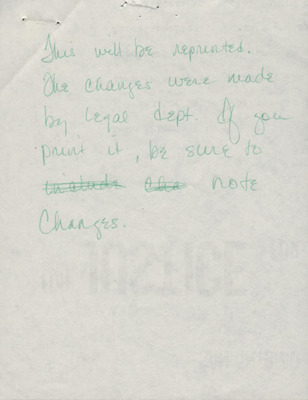 This will be reprinted.
The changes were made
by Legal dept. If you
print it, be sure to
include cha note
Changes.